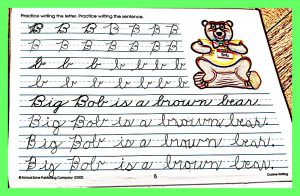 Practice writing the letter. Practice writing the sentence.
B B B B B B B
B B B B B B B
b b b b b b b
b b b b b b b
Big Bob is a brown bear.
Big Bob is a brown bear.
Big Bob is a brown bear.
Big Bob is a brown bear.
©School Zone Publishing Company
6
Cursive Writing